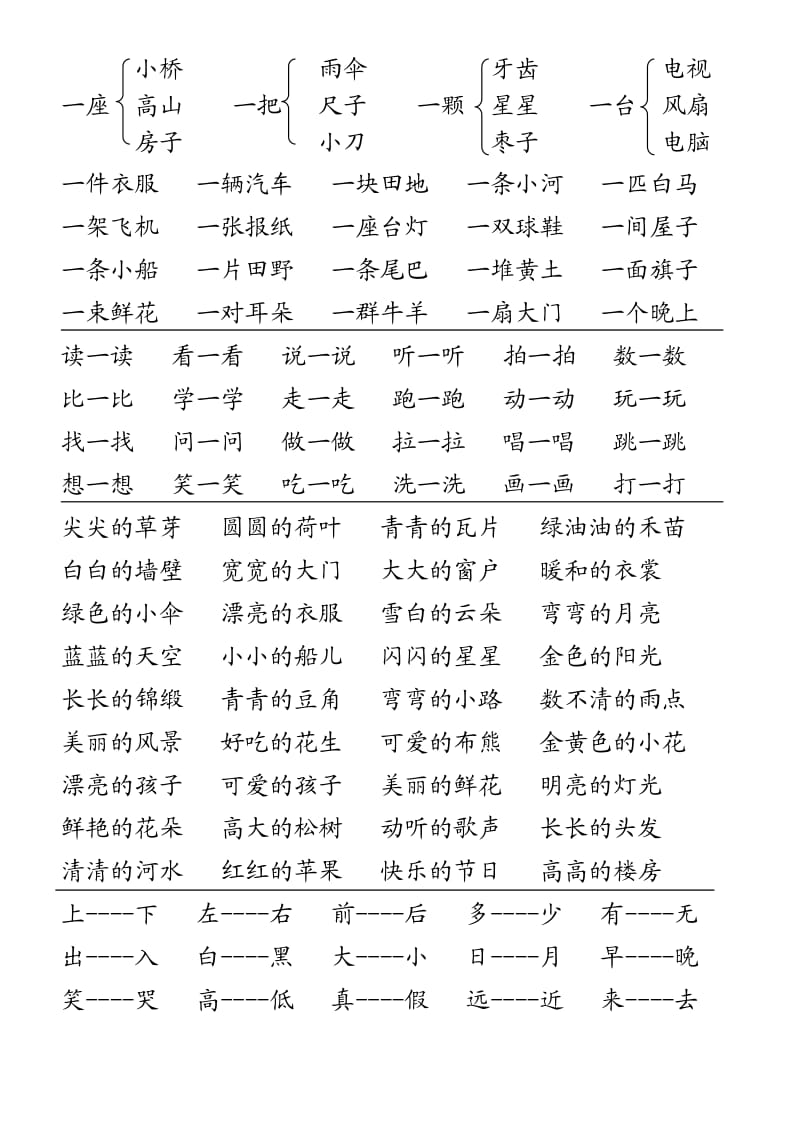 小桥 雨伞 牙齿 电视
一座 高山 一把 尺子 一颗 星星 一台 风扇
房子 小刀 枣子 电脑
一件衣服 一辆汽车 一块田地 一条小河 一匹白马
一架飞机 一张报纸 一座台灯 一双球鞋 一间屋子
一条小船 一片田野 一条尾巴 一堆黄土 一面旗子
一束鲜花 一对耳朵 一群牛羊 一扇大门 一个晚上
读一读 看一看 说一说 听一听 拍一拍 数一数
比一比 学一学 走一走 跑一跑 动一动 玩一玩
找一找 问一问 做一做 拉一拉 唱一唱 跳一跳
想一想 笑一笑 吃一吃 洗一洗 画一画 打一打
尖尖的草芽 圆圆的荷叶 青青的瓦片 绿油油的禾苗
白白的墙壁 宽宽的大门 大大的窗户 暖和的衣裳
绿色的小伞 漂亮的衣服 雪白的云朵 弯弯的月亮
蓝蓝的天空 小小的船儿 闪闪的星星 金色的阳光
长长的锦缎 青青的豆角 弯弯的小路 数不清的雨点
美丽的风景 好吃的花生 可爱的布熊 金黄色的小花
漂亮的孩子 可爱的孩子 美丽的鲜花 明亮的灯光
鲜艳的花朵 高大的松树 动听的歌声 长长的头发
清清的河水 红红的苹果 快乐的节日 高高的楼房
上----下 左----右 前----后 多----少 有----无
出----入 白----黑 大----小 日----月 早----晚
笑----哭 高----低 真----假 远----近 来----去